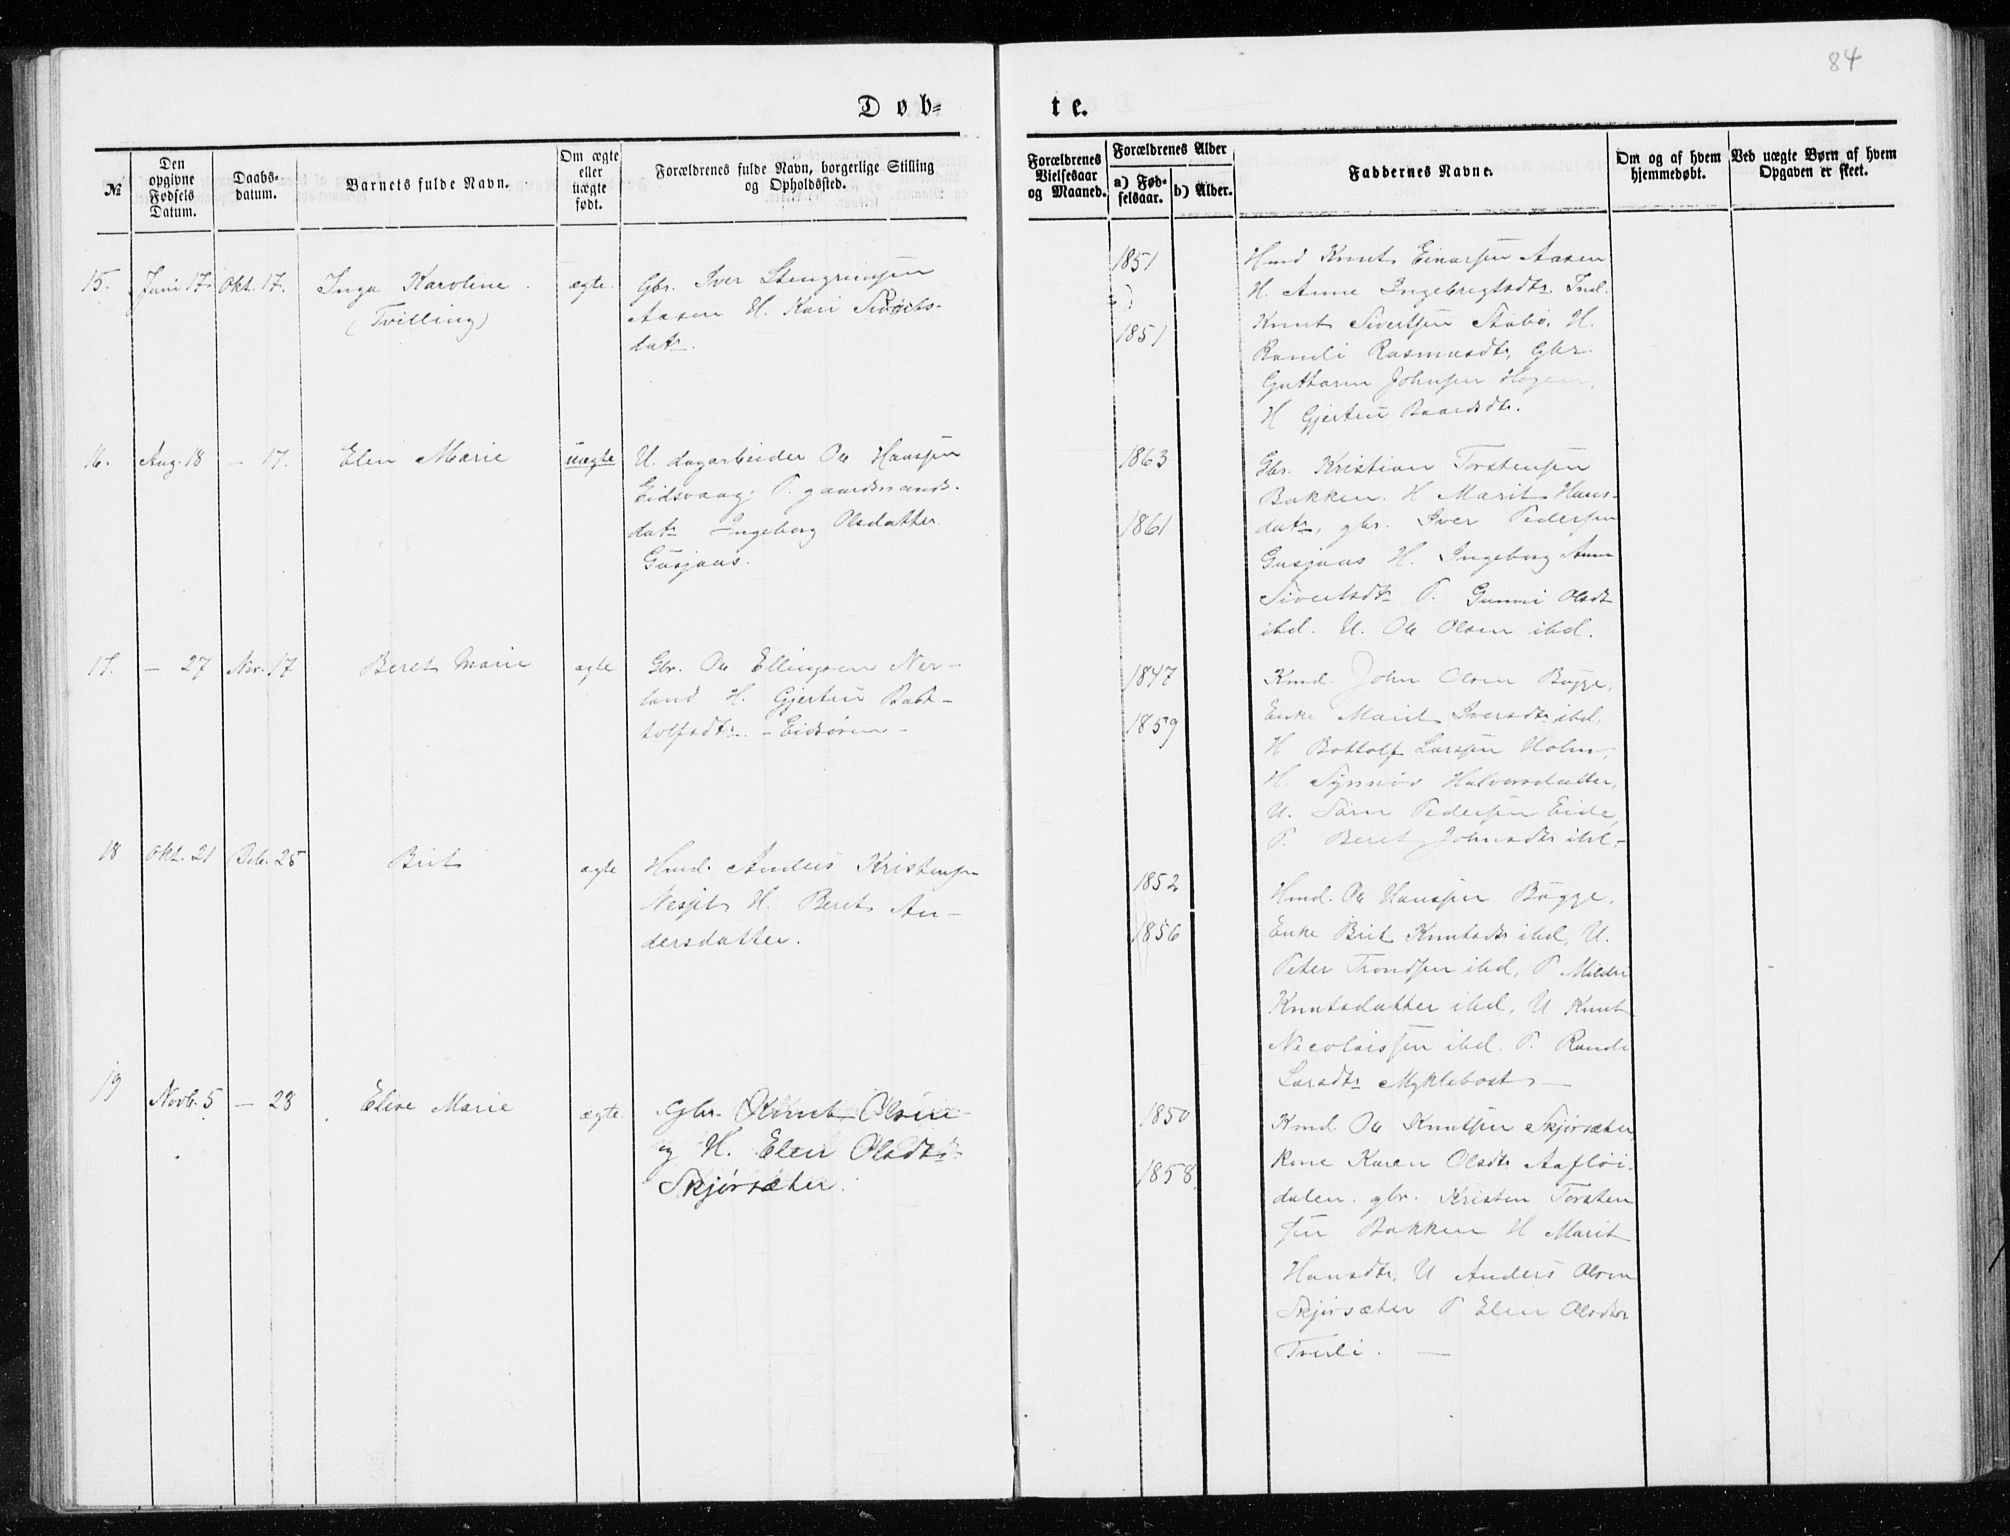 84
Døb-
te.
№
Den opgivne Fødsels Datum.
Daabs-datum.
Barnets fulde Navn.
Om ægte eller uægte født.
Forældrenes fulde Navn, borgerlige Stilling og Opholdssted.
Forældrenes Vielsesaar og Maaned.
Forældrenes Alder
a) Fødselsaar.
b) Alder.
Faddernes Navne.
Om og af hvem hjemmedøbt.
Ved uægte Børn af hvem Opgaven er skeet.
15. Juni 17. Okt. 17. Inga Karoline ægte.
(Tvilling)
Gbr. Iver Stengrimsen
Aasen H. Kari Siverts-
datr.
1851
1851
Hmd Knut Einarsen Aasen
H. Anne Ingebregtsdtr. Ind.
Knut Sivertsen Stubø. H.
Randi Rasmusdtr, Gbr.
Guttorm Johnsen Hagen,
H Gjertru Baardsdtr.
16. Aug. 18 – 17. Elen Marie uægte
U. dagarbeider Ole Hanssen
Eidsvaag; P. gaardmands-
datr Ingeborg Olsdatter
Gusjaas.
1863
1861
Gbr. Kristian Torstensen
Bakken. H Marit Hans-
datr, gbr. Iver Pedersen
Gusjaas H. Ingeborg Anne
Sivertsdtr P. Gunni Olsdt
ibd. U. Ole Olsen ibd.
17. – 27 Nov. 17 Beret Marie ægte
Gbr. Ole Ellingsen Ner-
land H. Gjertru Bot-
tolfsdtr. – Eidsøren –
1847
1859
Kmd. John Olsen Bugge,
Enke Marit Iversdtr ibd,
H Bottolf Larssen Holm,
H. Synnøv Halvorsdatter,
U. Sørn Pedersen Eide,
P. Beret Johnsdtr ibd.–
18 Okt. 21 Deb. 25 Brit ægte
Hmd. Anders Kristensen
Nesset H. Beret An-
dersdatter.
1852
1856
Hmd. Ole Hanssen Bugge,
Enke Brit Knutsdtr ibd, U.
Peter Trondsen ibd, P Mildri
Knutsdatter ibd, U Knut
Nicolaissen ibd. P. Randi
Larsdtr Myklebost –
19 Novb. 5 – 28 Elise Marie ægte
Gbr. Knut Olsen
og H. Elen Olsdtr
Skjørsæter.
1850
1858.
Kmd Ole Knutsen Skjørsæter,
Kone Karen Olsdtr Aafløi-
dalen. gbr. Kristen Torsten
sen Bakken H Marit
Hansdtr, U Anders Olsen
Skjørsæter P Elen Olsdtr
Tverli. –